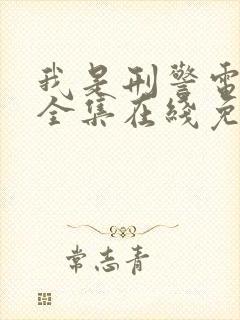 我是刑警电
全集在线免
常志青